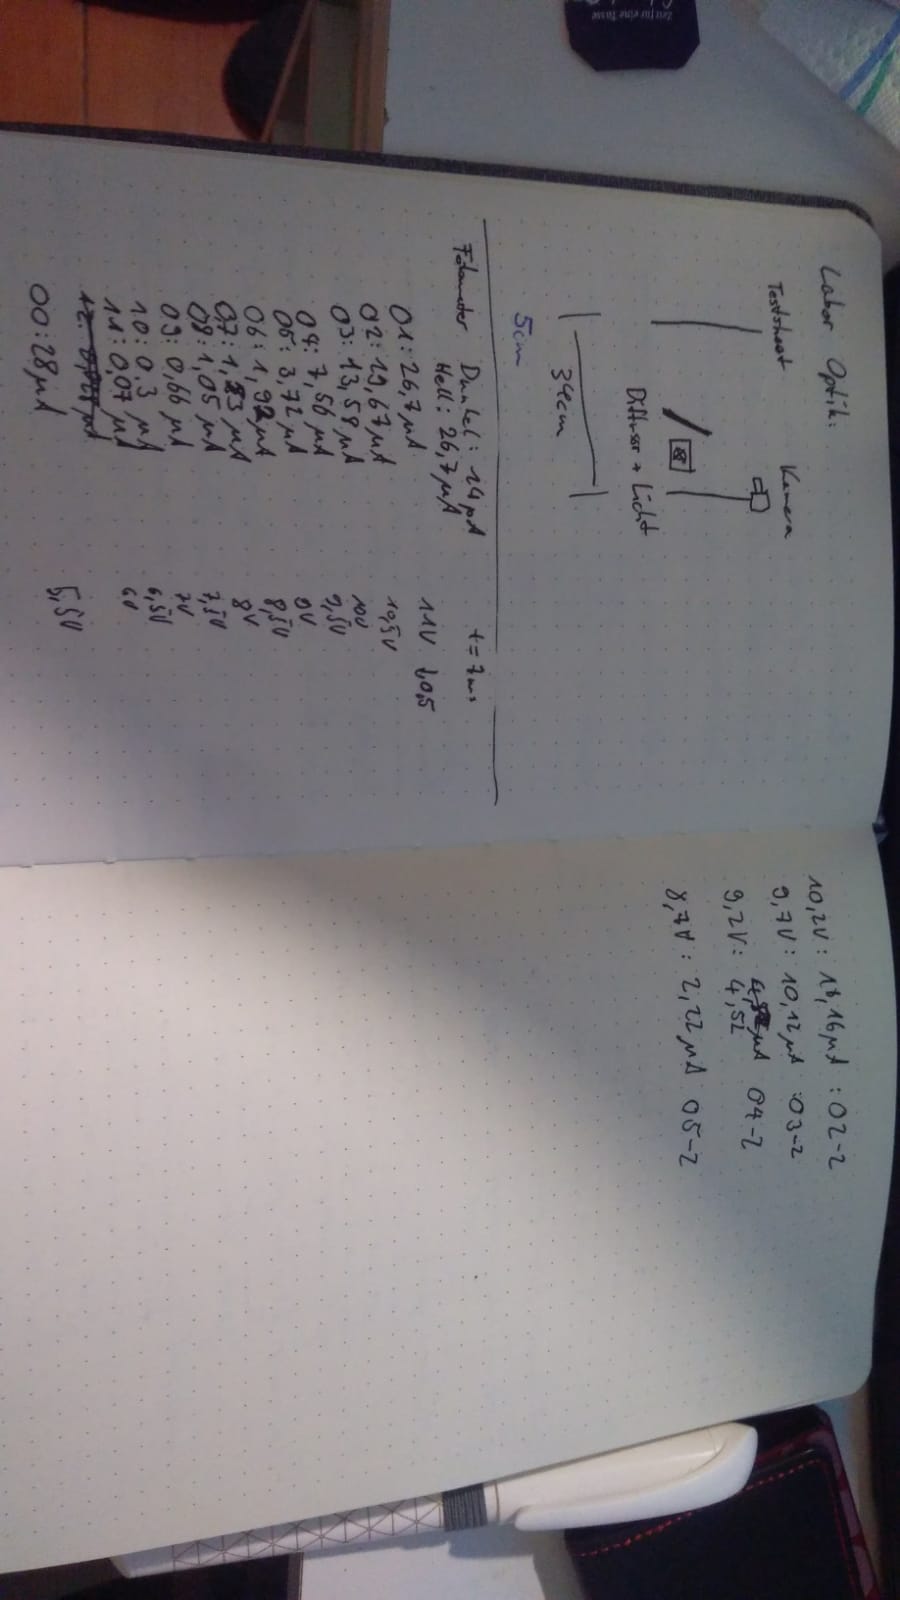 Labor Optik:
Testsheet
Kamera
Diffusor + Licht
34cm
5cm
Fotometer Dunkel: 14pA t=7ms
Hell: 26,7µA
01: 26,7µA 11V ↓0,5
02: 19,67µA 10,5V
03: 13,58µA 10V
04: 7,56µA 9,5V
05: 3,72µA 9V
06: 1,92µA 8,5V
07: 1,23µA 8V
08: 1,05µA 7,5V
09: 0,66µA 7V
10: 0.3µA 6,5V
11: 0,07µA 6V
00: 28µA 5,5V
10,2V: 16,16µA : 02-2
9,7V: 10,12µA :03-2
9,2V: 4,52 µA 04-2
8,7V: 2,22µA 05-2